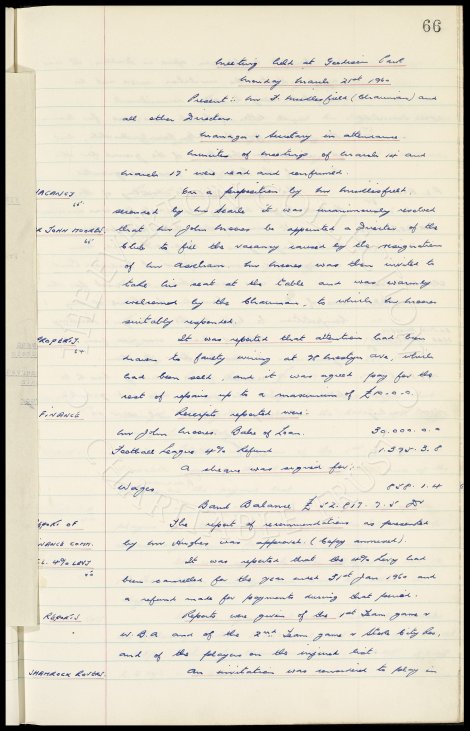 66
Meeting held at Goodison Park
Monday March 21st 1960
Present :- Mr F. Micklesfield (Chairman) and
all other Directors.
Manager & Secretary in attendance.
Minutes of meetings of March 14 and
March 17 were read and confirmed.
VACANCY
On a proposition by Mr Micklesfield,
seconded by Mr Searle it was unanimously resolved
R JOHN MOORES
that Mr John Moores be appointed a Director of the
Club to fill the vacancy caused by the resignation
of Mr Mr Moores was then invited to
take his seat at the table and was warmly
welcomed by the Chairman, to which Mr Moores
suitably responded.
PROPERTY.
It was reported that attention had been
drawn to faulty wiring at 78 Ave, which
had been sold, and it was agreed pay for the
cost of repairs up to a maximum of £10.0.0.
FINANCE
Receipts reported were:
Mr John Moores. Balce of Loan. 30.000.0.0
Football League 4% Refund 1.395.3.8
A cheque was signed for:-
Wages 858.1.4
Bank Balance £52.817.7.5
REPORT OF
The report of recommendations as presented
FINANCE COMM.
by Mr Hughes was approved. (Copy annexed).
F.L. 4% LEVY
It was reported that the 4% Levy had
been cancelled for the year ended 31st Jan 1960 and
a refund made for payments during that period.
REPORTS
Reports were given of the 1st Team game v
W.B.A and of the 2nd Team game v Stoke City Res,
and of the players on the injured list.
SHAMROCK ROVERS
An invitation was received to play in